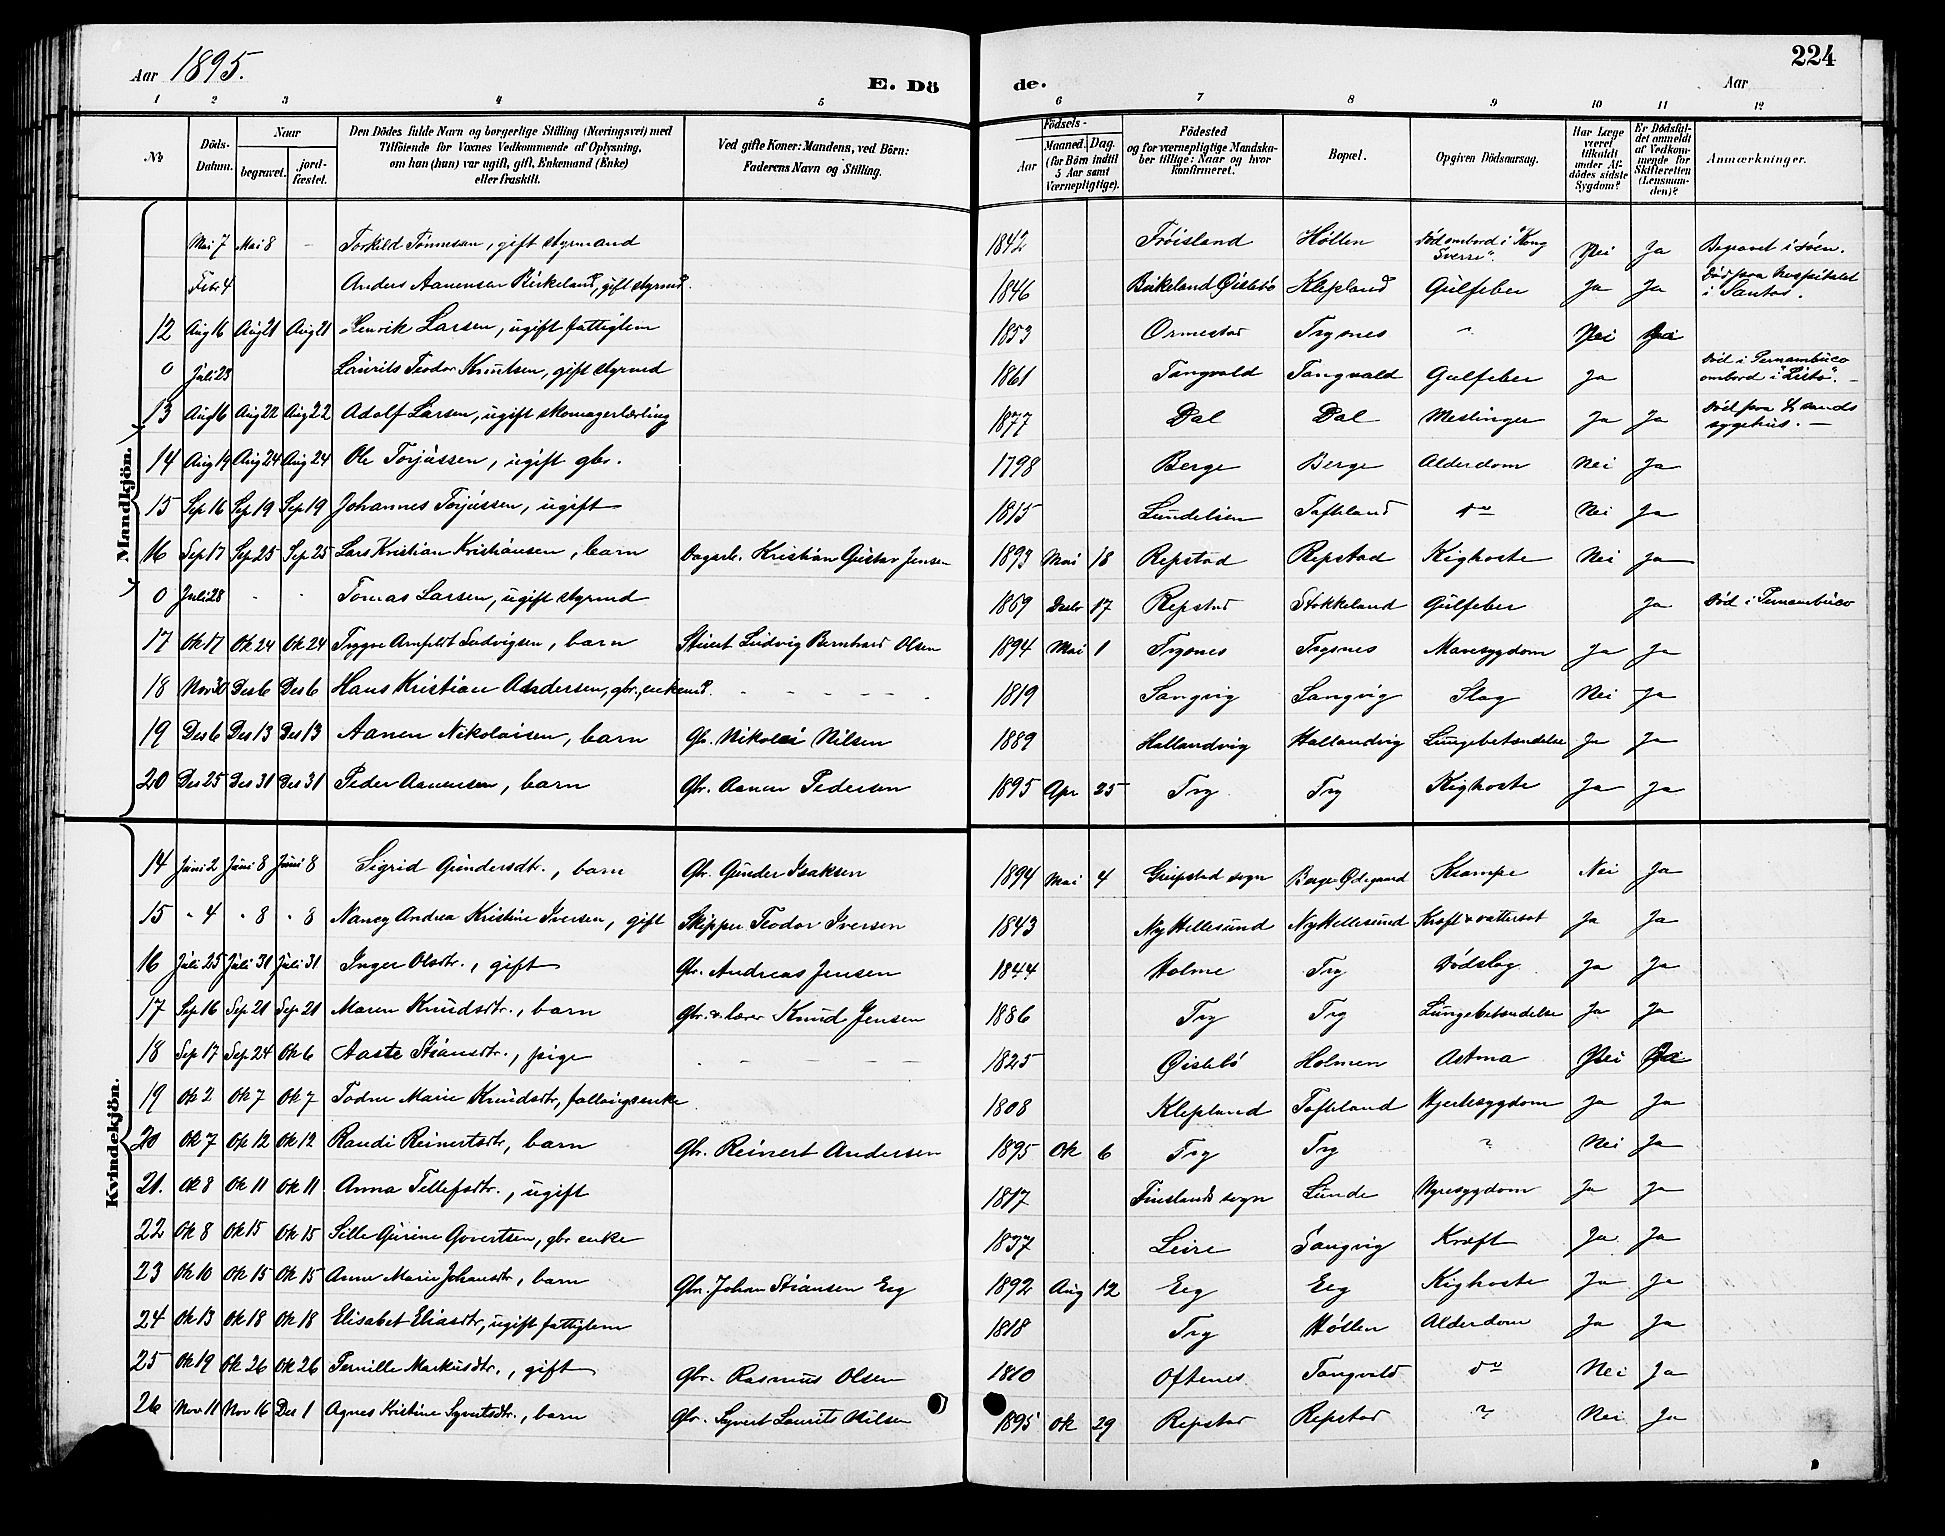 Aar 1895. E. Dö de. Aar 224
1 2 3 4 5 6 7 8 9 10 11 12
No Döds-Datum. Naar begravet. jord-fæstet. Den Dödes fulde Navn og borgerlige Stilling (Næringsvei) med Tilföiende for Voxnes Vedkommende af Oplysning, om han (hun) var ugift, gift, Enkemand (Enke) eller fraskilt. Ved gifte Koner: Mandens, ved Börn: Faderens Navn og Stilling. Födsels- Aar Maaned. Dag. (for Börn indtil 5 Aar samt Værnepligtige). Födested og for værnepligtige Mandskaber tillige: Naar og hvor konfirmeret. Bopæl. Opgiven Dödsaarsag. Har Læge været tilkaldt under Afdödes sidste Sygdom? Er Dödsfaldet anmeldt af Vedkommende for Skifteretten (Lensmanden)? Anmærkninger.
Mandkjön.
Mai 7 Mai 8 - Torkild Tönnesen, gift styrmand 1842 Tröisland Höllen Död ombord i "Kong Sverre". Nei Ja Begravet i söen.
Febr 4 Anders Aanensen Birkeland, gift styrmd. 1846 Birkeland Öislebö Klepland Gulfeber Ja Ja Död paa hospitalet i Santos.
12 Aug 16 Aug 21 Aug 21 Henrik Larsen, ugift fattiglem 1853 Ormestad Trysnes " Nei
0 Juli 23 Laurits Teodor Knutsen, gift styrmd 1861 Tangvald Tangvald Gulfeber Ja Död i Pernambuco ombord i "Lista".
13 Aug 16 Aug 22 Aug 22 Adolf Larsen, ugift skomagerlærling 1877 Dal Dal Meslinger Ja Ja Död paa Kr sands sygehus. -
14 Aug 19 Aug 24 Aug 24 Ole Torjussen, ugift gbr. 1798 Berge Berge Alderdom Nei Ja
15 Sep 16 Sep 19 Sep 19 Johannes Torjussen, ugift 1815 Lundelien Tofteland do Nei Ja
16 Sep 17 Sep 25 Sep 25 Lars Kristian Kristiansen, barn Dagarb. Kristian Gustav Jensen 1893 Mai 18 Repstad Repstad Kighoste Nei Ja
0 Juli 28 - - Tomas Larsen, ugift styrmd 1869 Desbr 17 Repstad Stokkeland Gulfeber Ja Död i Pernambuco
17 Ok 17 Ok 24 Ok 24 Trygve Arnfeldt Ludvigsen, barn Stuert Ludvig Bernhard Olsen 1894 Mai 1 Trysnes Trysnes Mavesygdom Ja Ja
18 Nov 30 Des 6 Des 6 Hans Kristian Andersen, gbr., enkemd. - - - - - 1819 Langvig Langvig Slag Nei Ja
19 Des 6 Des 13 Des 13 Aanen Nikolaisen, barn Gbr. Nikolai Nilsen 1889 Hallandvig Hallandvig Lungebetændelse Ja Ja
20 Des 25 Des 31 Des 31 Peder Aanensen, barn Gbr. Aanen Pedersen 1895 Apr 25 Try Try Kighoste Ja Ja
Kvindekjön.
14 Juni 2 Juni 8 Juni 8 Sigrid Gundersdtr., barn Gbr. Gunder Isaksen 1894 Mai 4 Greipstad sogn Berge Ødegaard Krampe Nei Ja
15 " 4 " 8 " 8 Nancy Andrea Kristine Iversen, gift Skipper Teodor Iversen 1843 Ny Hellesund Ny Hellesund Kræft & vattersot Ja Ja
16 Juli 25 Juli 31 Juli 31 Inger Olsdtr., gift Gbr. Andreas Jensen 1844 Holme Try Dödslag Ja Ja
17 Sep 16 Sep 21 Sep 21 Maren Knudsdtr., barn Gbr. & lærer Knud Jensen 1886 Try Try Lungebetændelse Ja Ja
18 Sep 17 Sep 24 Ok 6 Aaste Stiansdtr., pige - - - - 1825 Øislebö Holmen Astma Nei
19 Ok 2 Ok 7 Ok 7 Todne Marie Knudsdtr, fattigsenke 1808 Klepland Tofteland Hjertesygdom Ja Ja
20 Ok 7 Ok 12 Ok 12 Randi Reinertsdtr, barn Gbr. Reinert Andersen 1895 Ok 6 Try Try ? Nei Ja
21. Ok 8 Ok 11 Ok 11 Anna Tellefsdtr., ugift 1817 Finslands sogn Lunde Nyresygdom Ja Ja
22 Ok 8 Ok 15 Ok 15 Sille Gurine Govertsen, gbr enke 1837 Leire Langvig Kræft Ja Ja
23 Ok 10 Ok 15 Ok 15 Anne Marie Johansdtr, barn Gbr. Johan Stiansen Eeg 1892 Aug 12 Eeg Eeg Kighoste Ja Ja
24 Ok 13 Ok 18 Ok 18 Elisabet Eliasdtr, ugift fattiglem 1818 Try Höllen Alderdom Ja Ja
25 Ok 19 Ok 26 Ok 26 Pernille Markusdtr., gift Gbr. Rasmus Olsen 1810 Oftenes Tangvald do Nei Ja
26 Nov 11 Nov 16 Des 1 Agnes Kristine Syvertsdtr., barn Gbr. Syvert Laurits Nilsen 1895 Ok 29 Repstad Repstad ? Nei Ja